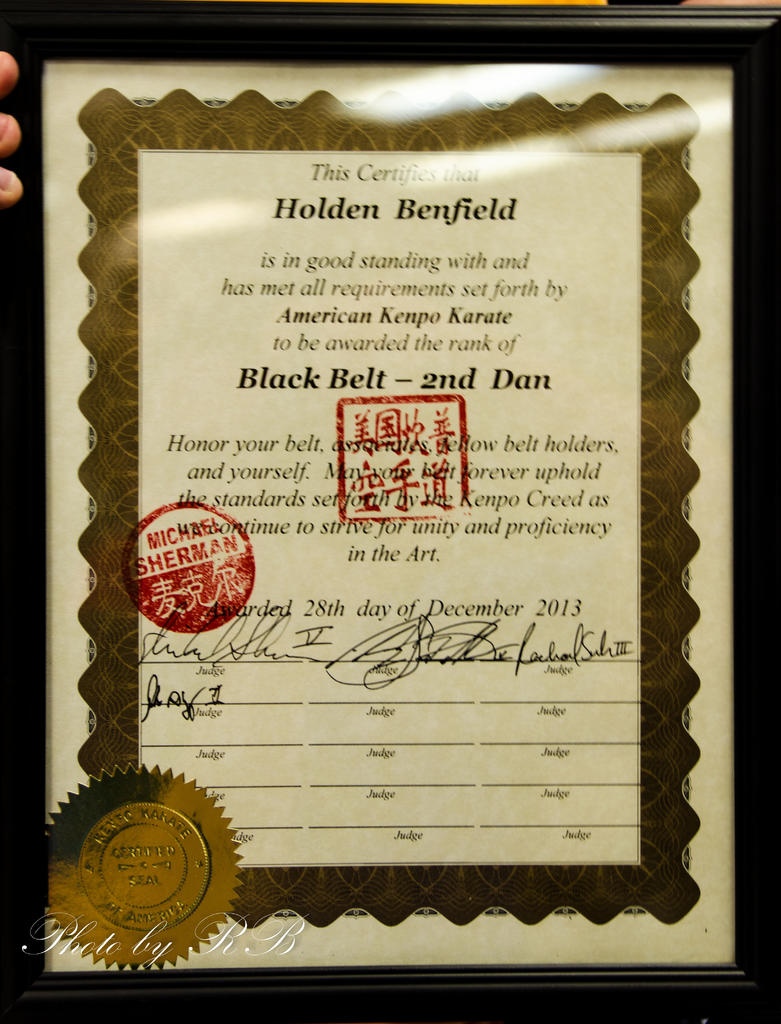 This Certifies that
Holden Benfield
is in good standing with and
has met all requirements set forth by
American Kenpo Karate
to be awarded the rank of
Black Belt – 2nd Dan
美国 普
空手道
Honor your belt, associates, fellow belt holders,
and yourself. May your belt forever uphold
the standards set forth by the Kenpo Creed as
we continue to strive for unity and proficiency
in the Art.
MICHAEL
SHERMAN
麦克尔
Awarded 28th day of December 2013
V
III
Judge Judge Judge
II
Judge Judge Judge
Judge Judge Judge
Judge Judge Judge
Judge Judge Judge
KENPO KARATE
CERTIFIED
SEAL
OF AMERICA
Photo by RB